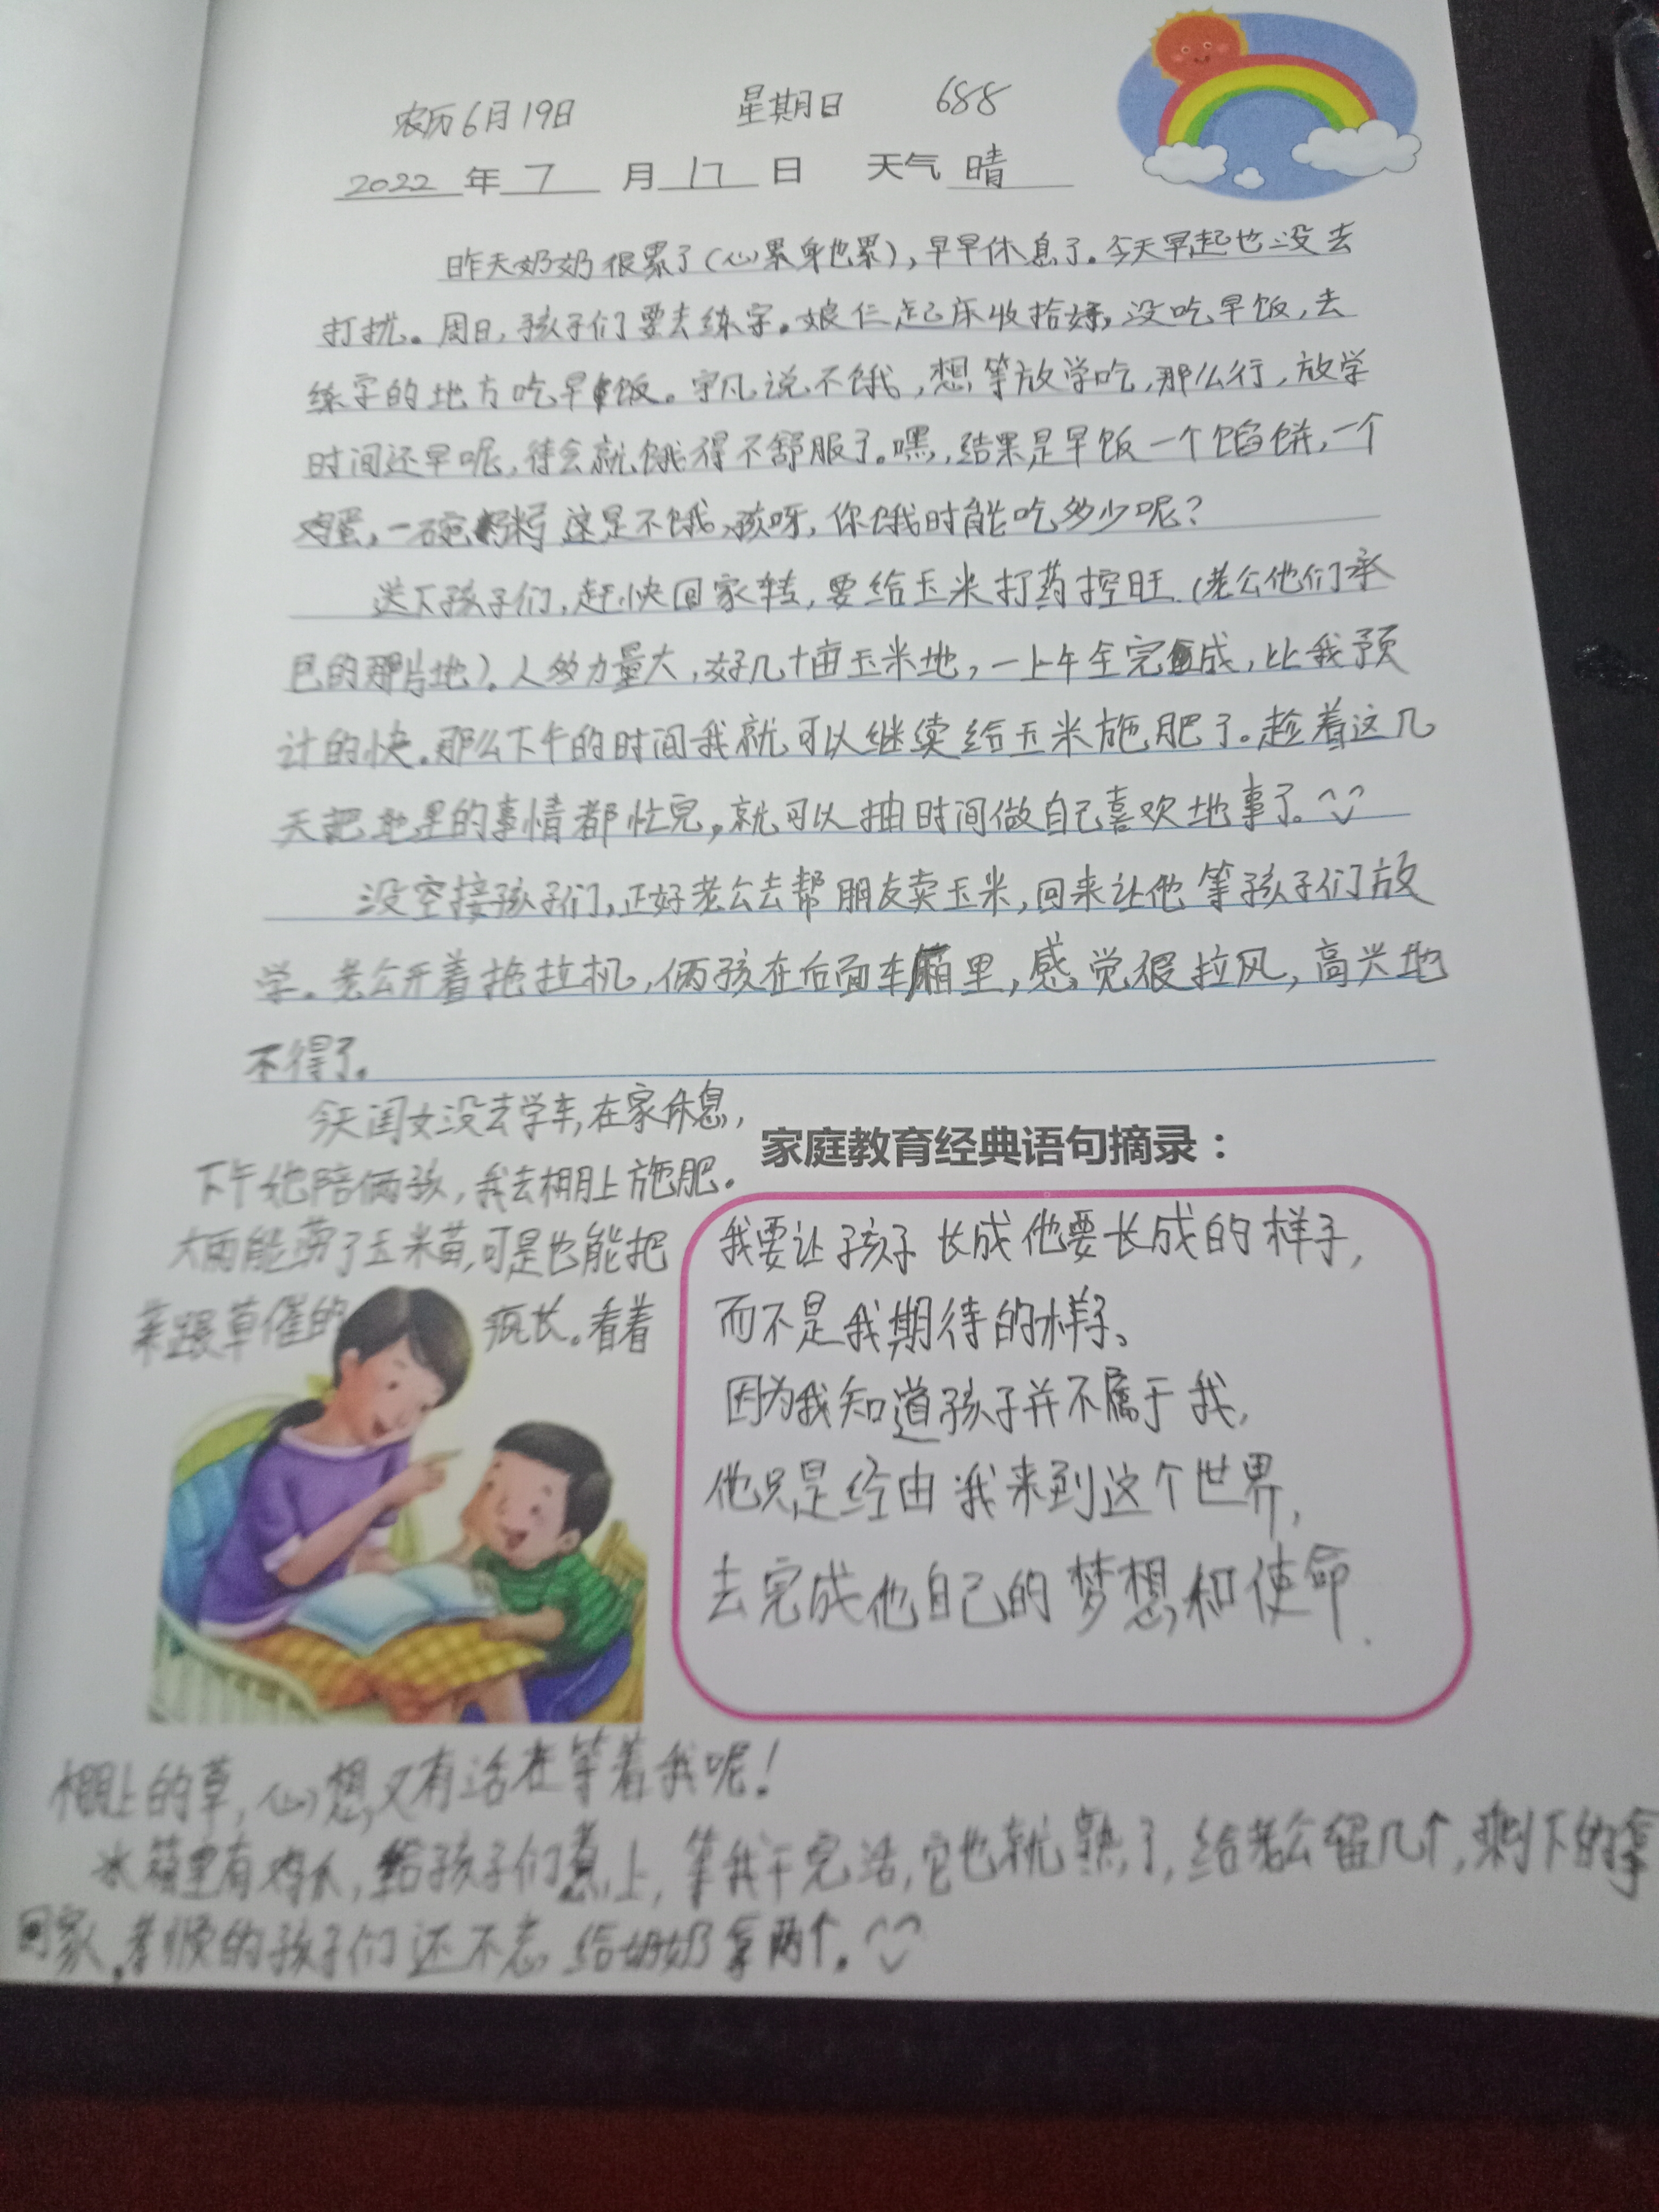 农历6月19日 星期日 688
2022年7月17日 天气 晴
昨天奶奶很累了(心累身也累),早早休息了。今天早起也没去
打扰。周日,孩子们要去练字。娘仨起床收拾好,没吃早饭,去
练字的地方吃早饭。宇凡说不饿,想等放学吃,那么行,放学
时间还早呢,待会就饿得不舒服了。嘿,结果是早饭一个馅饼,一个
鸡蛋,一碗粥 这是不饿,孩呀,你饿时能吃多少呢?
送下孩子们,赶快回家转,要给玉米打药控旺.(老公他们承
包的那片地)。人多力量大,好几十亩玉米地,一上午全完成,比我预
计的快。那么下午的时间我就可以继续给玉米施肥了。趁着这几
天把地里的事情都忙完,就可以抽时间做自己喜欢地事了。
没空接孩子们,正好老公去帮朋友卖玉米,回来让他等孩子们放
学。老公开着拖拉机,俩孩在后面车厢里,感觉很拉风,高兴地
不得了。
今天闺女没去学车,在家休息,
下午她陪俩孩,我去棚上施肥。
大雨能劳了玉米苗,可是也能把
草催的疯长。看着
棚上的草,心想,又有活在等着我呢!
冰箱里有鸡爪,给孩子们煮上,等我干完活,它也就熟了,给老公留几个,剩下的拿
回家。孝顺的孩子们还不忘给奶奶拿两个。
家庭教育经典语句摘录:
我要让孩子长成他要长成的样子,
而不是我期待的样子、
因为我知道孩子并不属于我,
他只是经由我来到这个世界,
去完成他自己的梦想和使命.